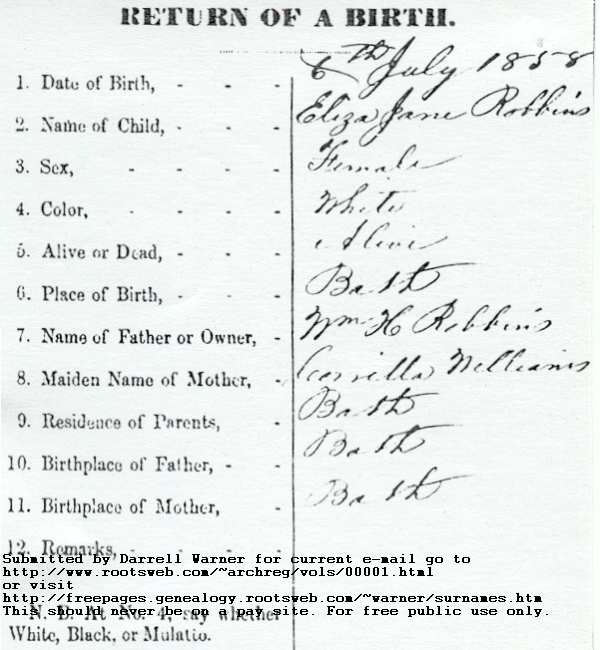 RETURN OF A BIRTH.
1. Date of Birth, - - - 6th July 1858
2. Name of Child, - - - Eliza Jane Robbins
3. Sex, - - - - Female
4. Color, - - - White
5. Alive or Dead, - - - Alive
6. Place of Birth, - - - Bath
7. Name of Father or Owner, - Wm H Robbins
8. Maiden Name of Mother, - Williams
9. Residence of Parents, - Bath
10. Birthplace of Father, - - Bath
11. Birthplace of Mother, - Bath
12. Remarks, - - - -
Submitted by Darrell Warner for current e-mail go to
http://www.rootsweb.com/~archreg/vols/00001.html
or visit
http://freepages.genealogy.rootsweb.com/~warner/surnames.htm
This should never be on a pay site. For free public use only.
N. B. At No. 4, say whether
White, Black, or Mulatto.